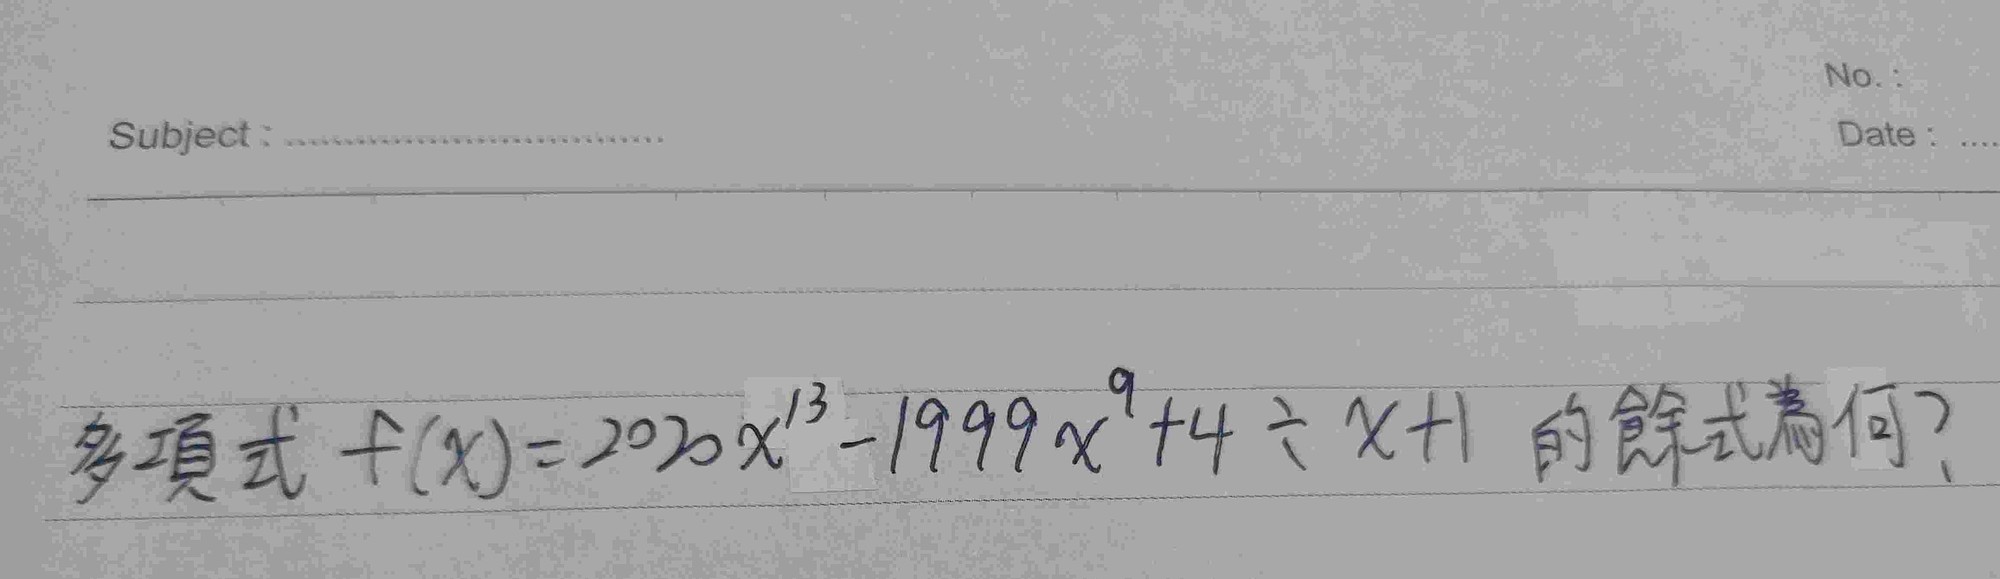 No. :
Subject : ................................
Date : ....
多項式 f(x)=2020x¹³-1999x⁹+4÷x+1 的餘式為何?